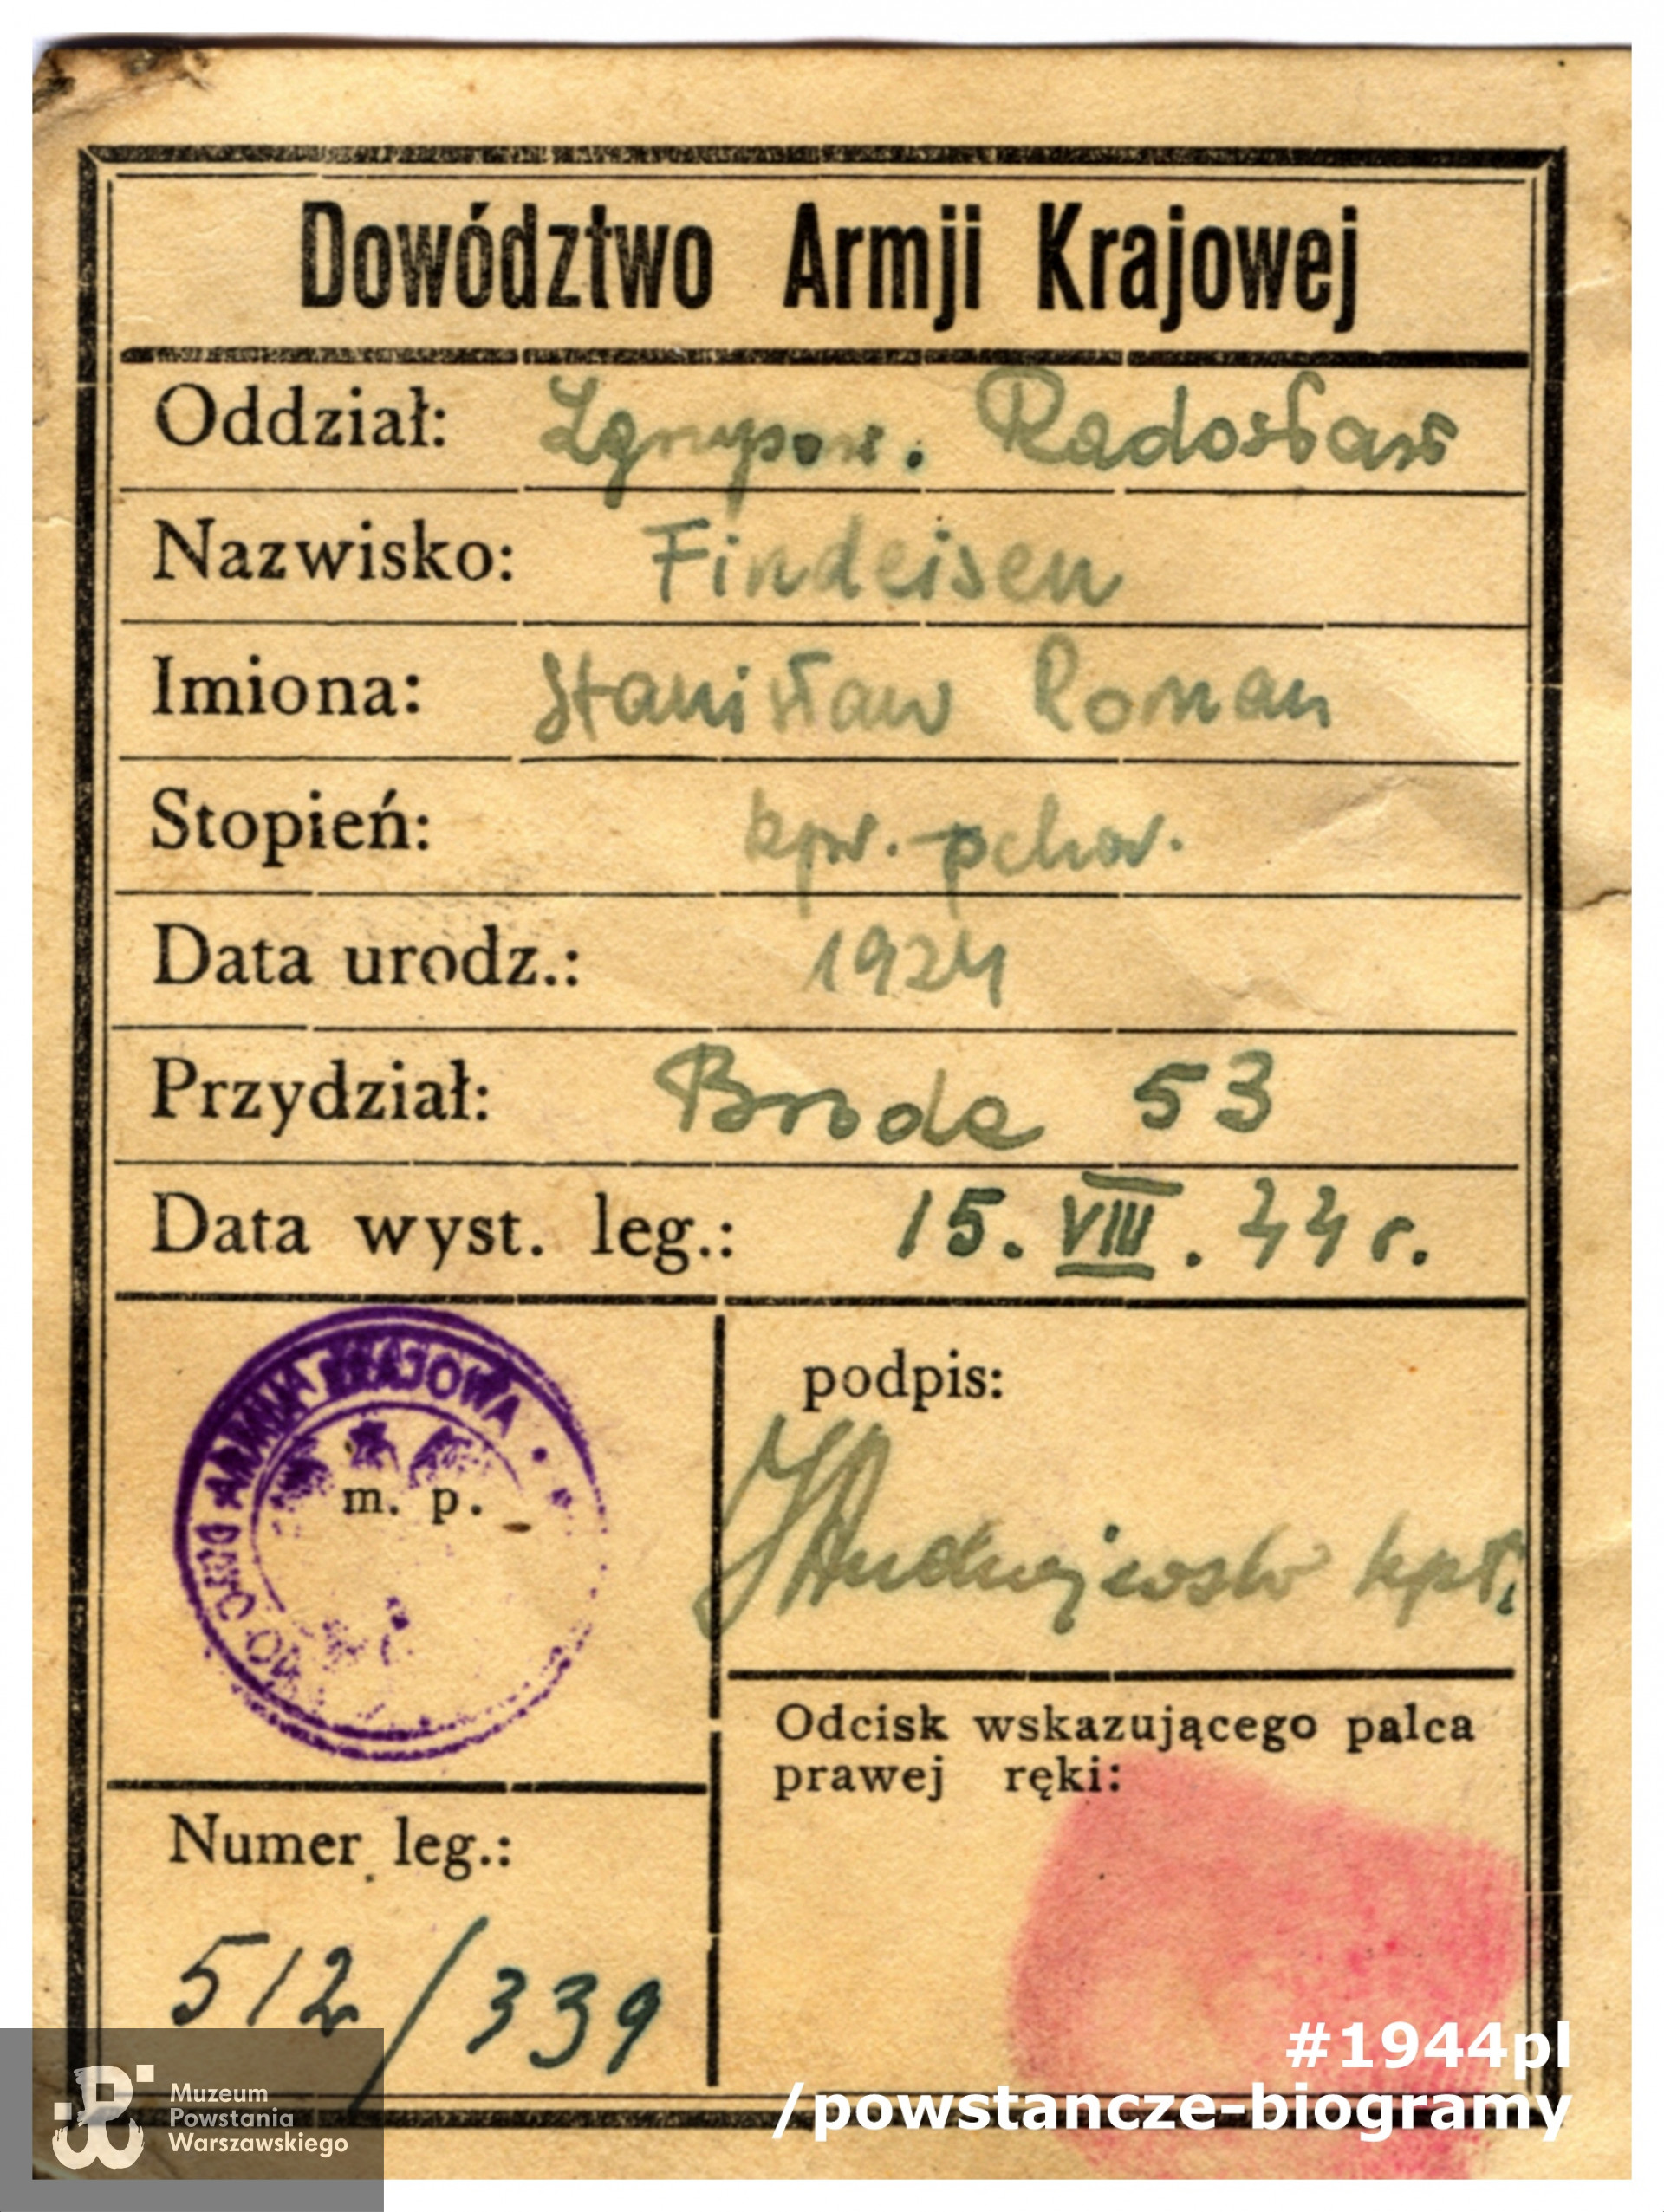 Dowództwo Armji Krajowej
Oddział: Zgrupow. Radosław
Nazwisko: Findeisen
Imiona: Stanisław Roman
Stopień: kpr. pchor.
Data urodz.: 1924
Przydział: Broda 53
Data wyst. leg.: 15. VIII. 44 r.
ARMIA KRAJOWA
m. p.
podpis:
kpt.
Odcisk wskazującego palca
prawej ręki:
Numer leg.:
512/339
#1944pl
/powstancze-biogramy
Muzeum
Powstania
Warszawskiego